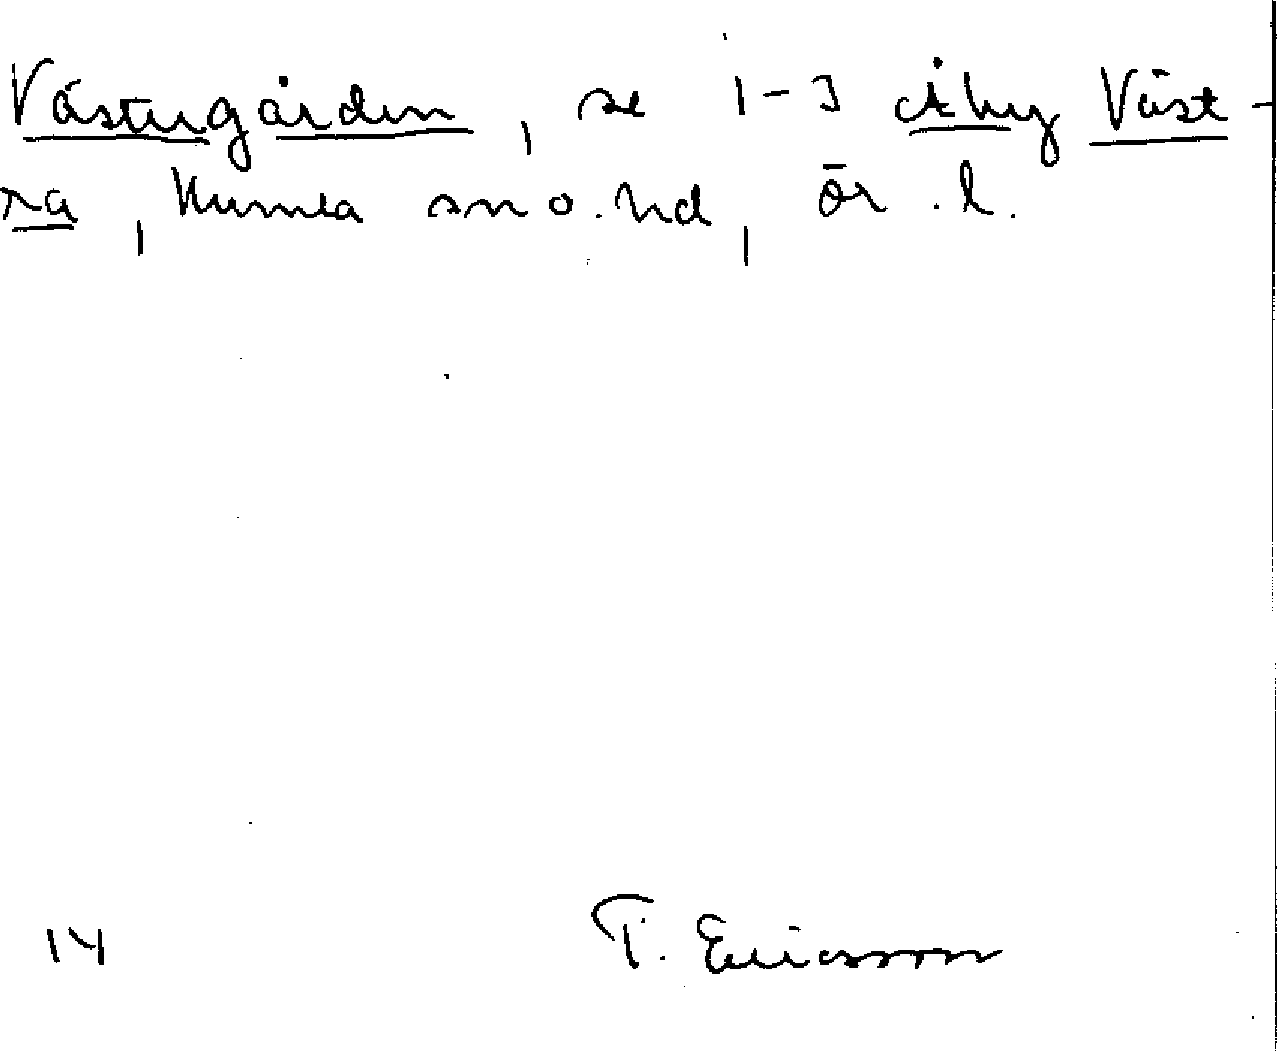 Västergården, se 1-3 Åby Väst-
ra, Kumla sn o. hd, Ör. l.
14 T. Ericsson